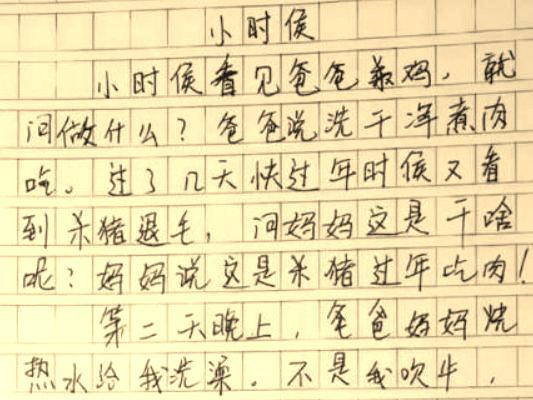 小时侯
小时侯看见爸爸杀鸡，就
问做什么？爸爸说洗干净煮肉
吃。过了几天快过年时侯又看
到杀猪退毛，问妈妈这是干啥
呢？妈妈说这是杀猪过年吃肉！
第二天晚上，爸爸妈妈烧
热水给我洗澡。不是我吹牛，